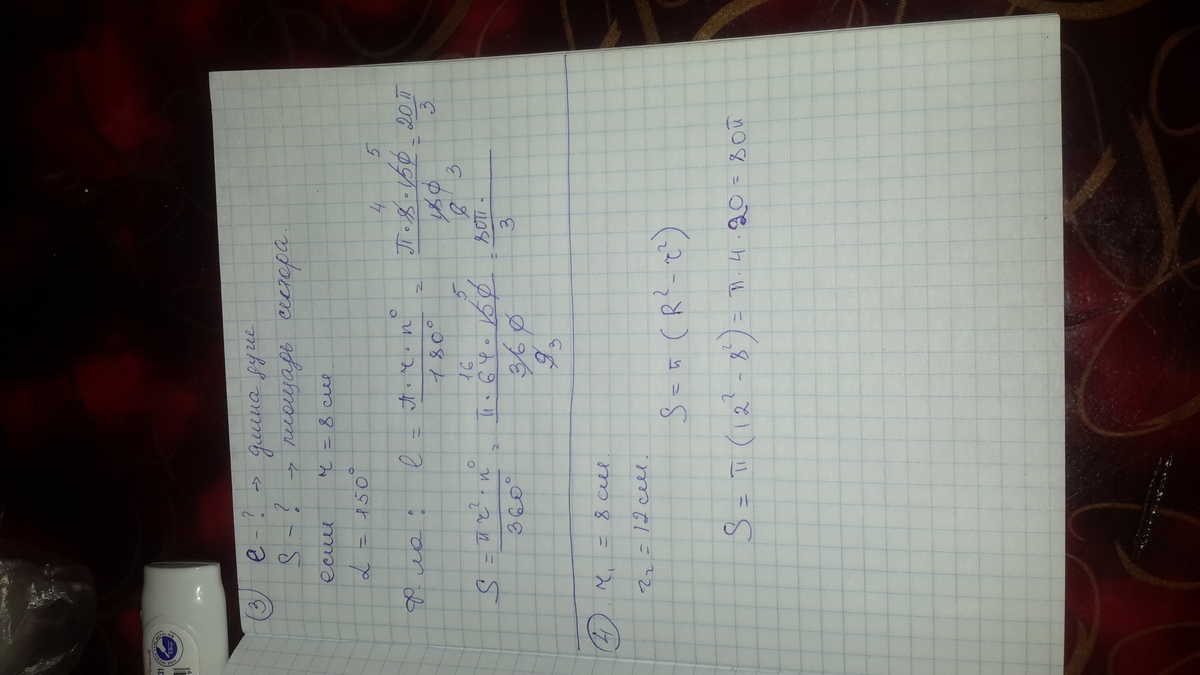 ③ e - ? → длина дуги
S - ? → площадь сектора.
если r = 8 см
α = 150°
Ф ла: l = π·r·n° / 180° = π·8·150 / 180 = 20π / 3
4 5
6 3
S = πr²·n° / 360° = π·64·150 / 360 = 80π / 3.
16 5
9 3
④. r₁ = 8 см.
r₂ = 12 см.
S = π (R² - r²)
S = π (12² - 8²) = π·4·20 = 80π